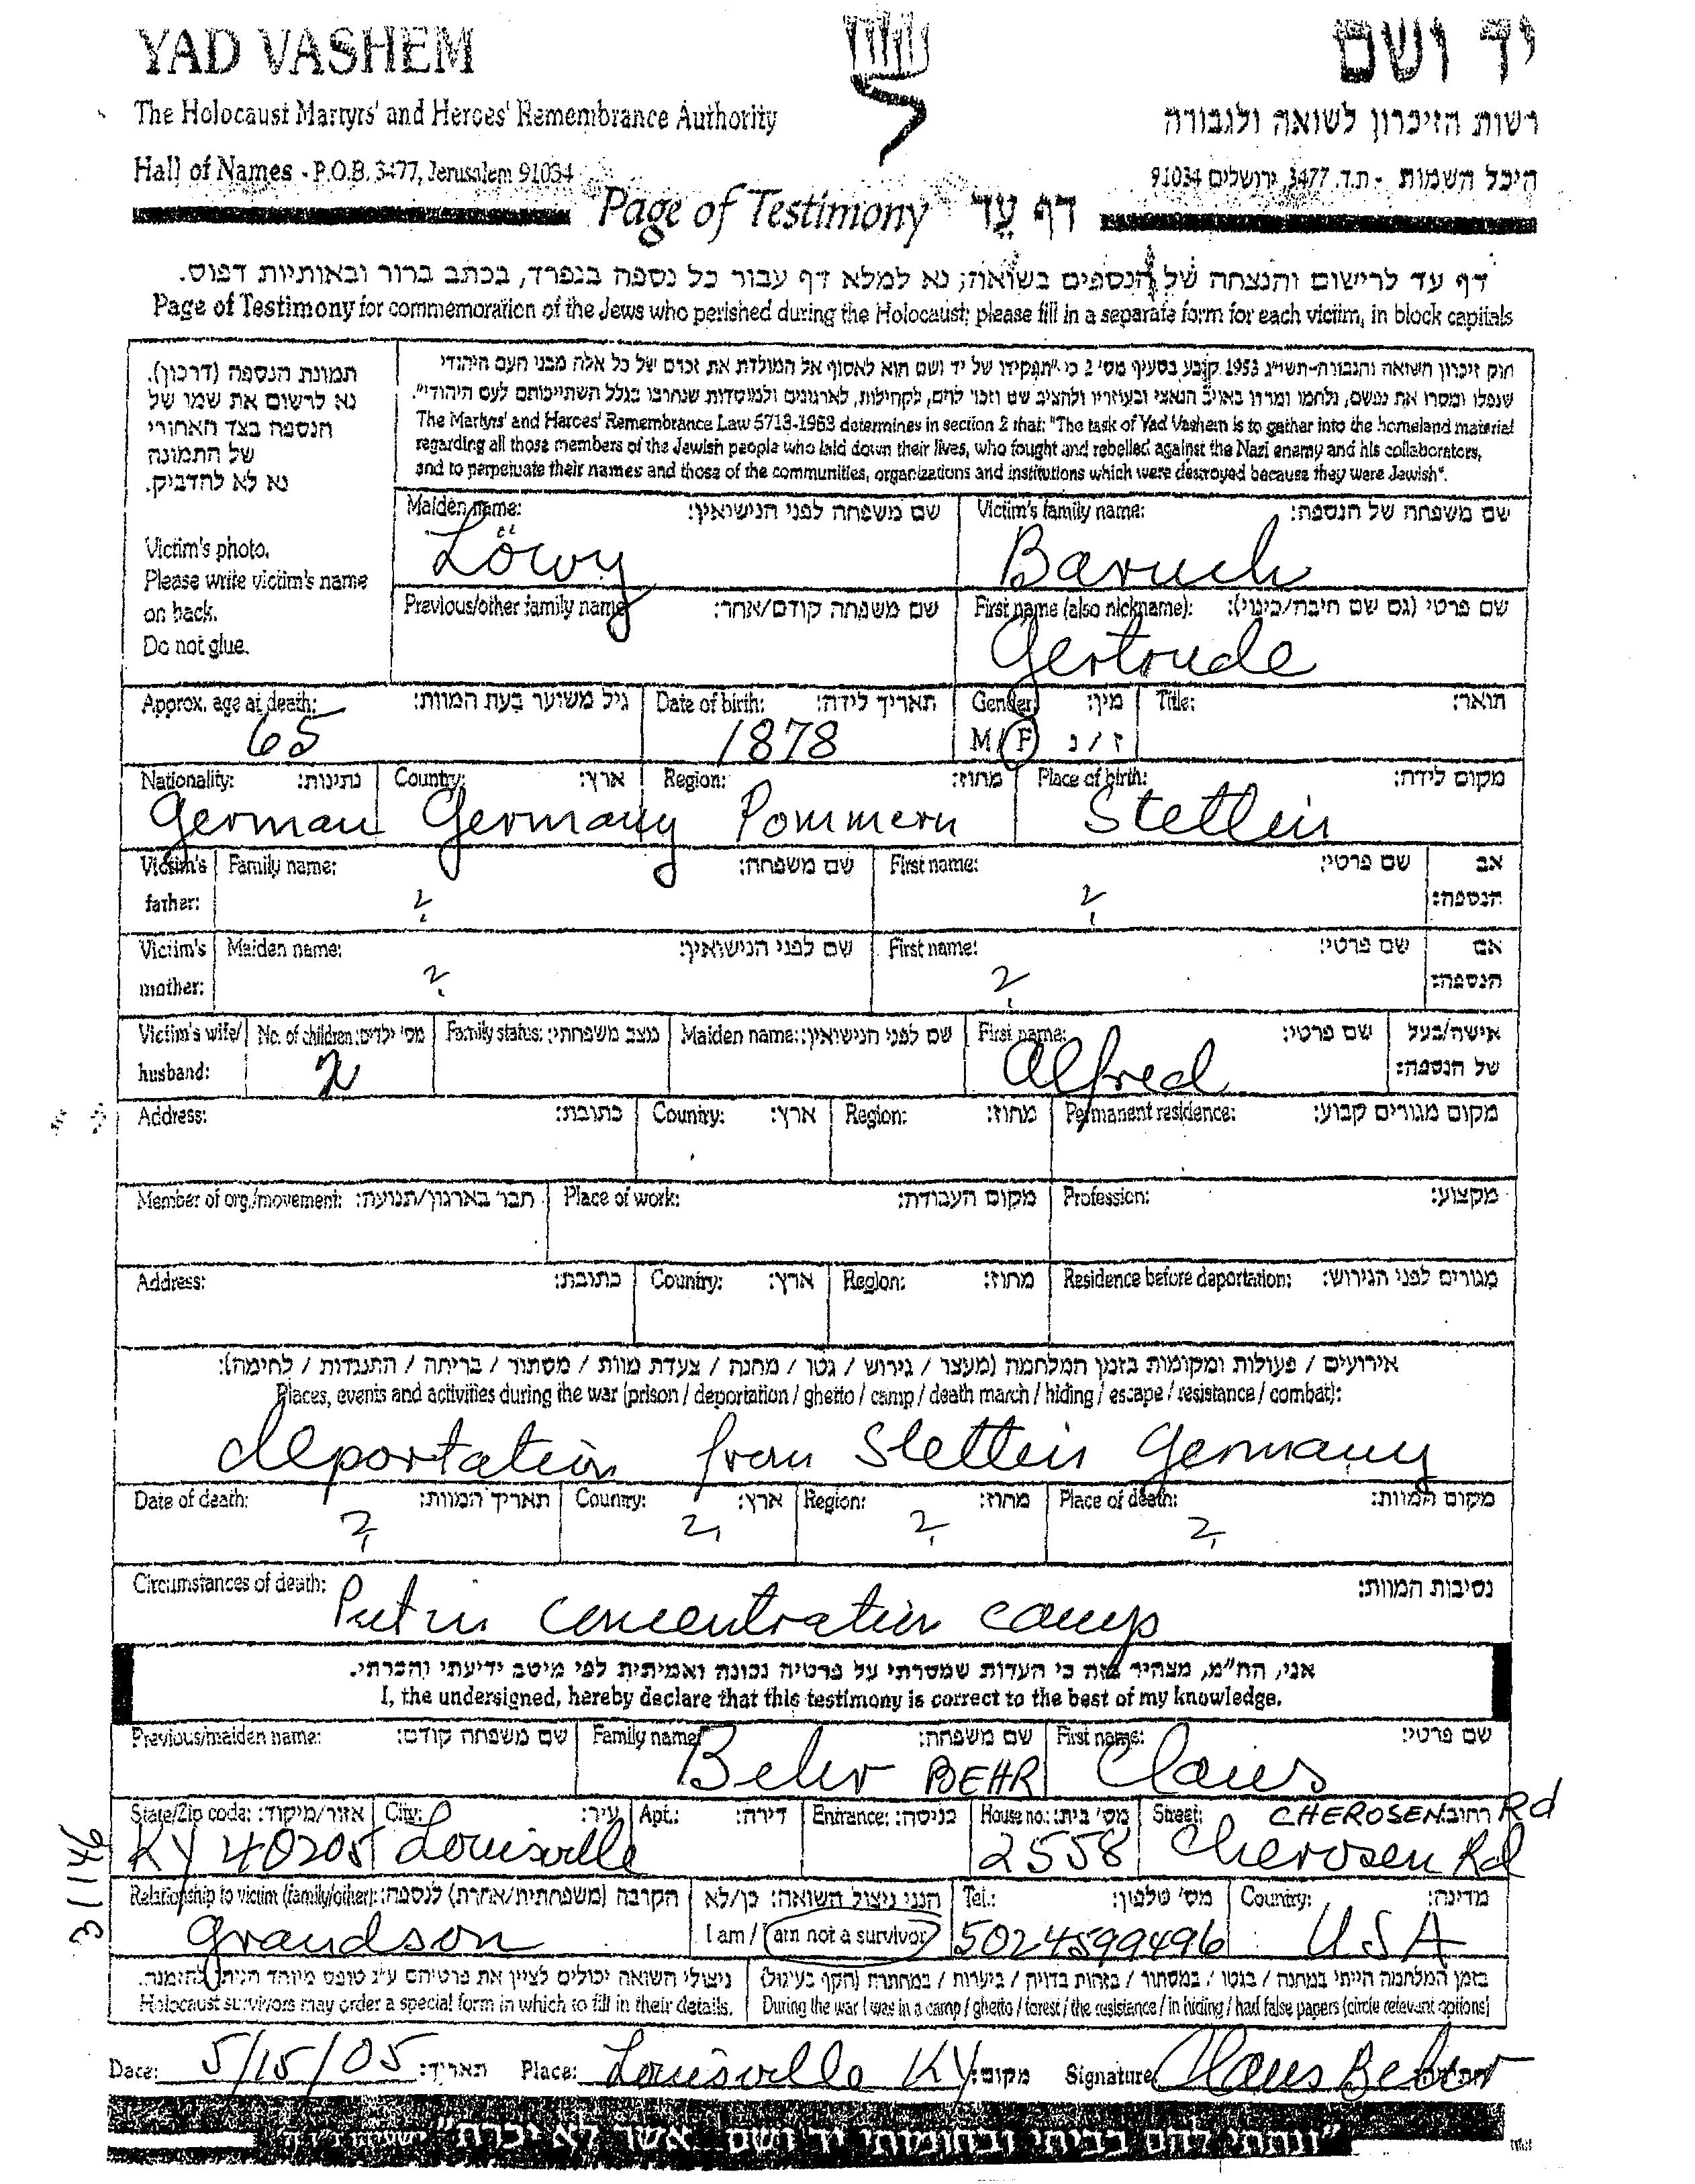 YAD VASHEM
יד ושם
The Holocaust Martyrs' and Heroes' Remembrance Authority
רשות הזיכרון לשואה ולגבורה
Hall of Names - P.O.B. 3477, Jerusalem 91034
היכל השמות - ת.ד. 3477, ירושלים 91034
Page of Testimony דף עד
דף עד לרישום והנצחה של הנספים בשואה; נא למלא דף עבור כל נספה בנפרד, בכתב ברור ובאותיות דפוס.
Page of Testimony for commemoration of the Jews who perished during the Holocaust; please fill in a separate form for each victim, in block capitals
תמונת הנספה (דרכון).
נא לרשום את שמו של
הנספה בצד האחורי
של התמונה
נא לא להדביק.
Victim's photo.
Please write victim's name
on back.
Do not glue.
חוק זיכרון השואה והגבורה-תשי"ג 1953 קובע בסעיף מס' 2 כי "תפקידו של יד ושם הוא לאסוף אל המולדת את זכרם של כל אלה מבני העם היהודי
שנפלו ומסרו את נפשם, נלחמו ומרדו באויב הנאצי ובעוזריו ולהציב שם וזכר להם, לקהילות, לארגונים ולמוסדות שנחרבו בגלל השתייכותם לעם היהודי".
The Martyrs' and Heroes' Remembrance Law 5713-1953 determines in section 2 that: "The task of Yad Vashem is to gather into the homeland material
regarding all those members of the Jewish people who laid down their lives, who fought and rebelled against the Nazi enemy and his collaborators,
and to perpetuate their names and those of the communities, organizations and institutions which were destroyed because they were Jewish".
Maiden name: שם משפחה לפני הנישואין: Victim's family name: שם משפחה של הנספה:
Löwy Baruch
Previous/other family name: שם משפחה קודם/אחר: First name (also nickname): שם פרטי (גם שם חיבה/כינוי):
Gertrude
Approx. age at death: גיל משוער בעת המוות: Date of birth: תאריך לידה: Gender: מין: Title: תואר:
65 1878 M / F ז / נ
Nationality: נתינות: Country: ארץ: Region: מחוז: Place of birth: מקום לידה:
German Germany Pommern Stettin
Victim's father: Family name: שם משפחה: First name: שם פרטי: אב הנספה:
? ?
Victim's mother: Maiden name: שם לפני הנישואין: First name: שם פרטי: אם הנספה:
? ?
Victim's wife/ husband: No. of children: מס' ילדים: Family status: מצב משפחתי: Maiden name: שם לפני הנישואין: First name: שם פרטי: אישה/בעל של הנספה:
2 Alfred
Address: כתובת: Country: ארץ: Region: מחוז: Permanent residence: מקום מגורים קבוע:
Member of org./movement: חבר בארגון/תנועה: Place of work: מקום העבודה: Profession: מקצוע:
Address: כתובת: Country: ארץ: Region: מחוז: Residence before deportation: מגורים לפני הגירוש:
אירועים / פעולות ומקומות בזמן המלחמה (מעצר / גירוש / גטו / מחנה / צעדת מוות / מסתור / בריחה / התנגדות / לחימה):
Places, events and activities during the war (prison / deportation / ghetto / camp / death march / hiding / escape / resistance / combat):
deportation from Stettin Germany
Date of death: תאריך המוות: Country: ארץ: Region: מחוז: Place of death: מקום המוות:
? ? ? ?
Circumstances of death: נסיבות המוות:
Put in concentration camp
אני, הח"מ, מצהיר בזה כי העדות שמסרתי על פרטיה נכונה ואמיתית לפי מיטב ידיעתי והכרתי.
I, the undersigned, hereby declare that this testimony is correct to the best of my knowledge.
Previous/maiden name: שם משפחה קודם: Family name: שם משפחה: First name: שם פרטי:
Behr BEHR Claus
State/Zip code: אזור/מיקוד: City: עיר: Apt.: דירה: Entrance: כניסה: House no.: מס' בית: Street: רחוב: CHEROSEN Rd
KY 40205 Louisville 2558 Cherosen Rd
31146
Relationship to victim (family/other): הקרבה (משפחתית/אחרת) לנספה: הנני ניצול השואה: כן/לא Tel.: מס' טלפון: Country: מדינה:
grandson I am / am not a survivor 5024599496 USA
ניצולי השואה יכולים לציין את פרטיהם ע"ג טופס מיוחד
בזמן המלחמה הייתי במחנה / בגטו / במסתור / בזהות בדויה / ביערות / במחתרת (הקף בעיגול)
Holocaust survivors may order a special form in which to fill in their details.
During the war I was in a camp / ghetto / forest / the resistance / in hiding / had false papers (circle relevant options)
Date: 5/15/05 תאריך: Place: Louisville KY מקום: Signature Claus Behr
"ונתתי להם בביתי ובחומותי יד ושם אשר לא יכרת"